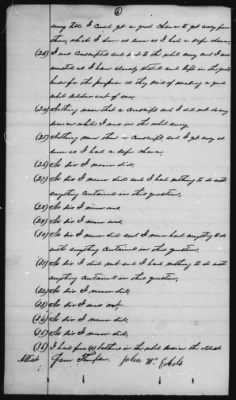 6
away but I could get a good chance to get away from
them, which I done as soon as I had a safe chance.
(24) I was conscripted and put in the rebel army and I was
as I have already stated and left in the
for the purpose as they said of making a good
rebel soldier out of me.
(24) Nothing more than a conscript and I did not do any
while I was in the rebel army.
(25) Nothing more than a conscript and I got away as
soon as I had a safe chance.
(26) No Sir I never did.
(27) No Sir I never did and I had nothing to do with
anything contained in this question.
(28) No Sir I never was.
(29) No Sir I never was.
(30) No Sir I never did and I never had anything to do
with anything contained in this question.
(31) No Sir I did not and I had nothing to do with
anything contained in this question.
(32) No Sir I never did.
(33) No Sir I was not.
(34) No Sir I never did.
(35) No Sir I never did.
(36) I had four (4) brothers in the rebel service the oldest
Attest John W.